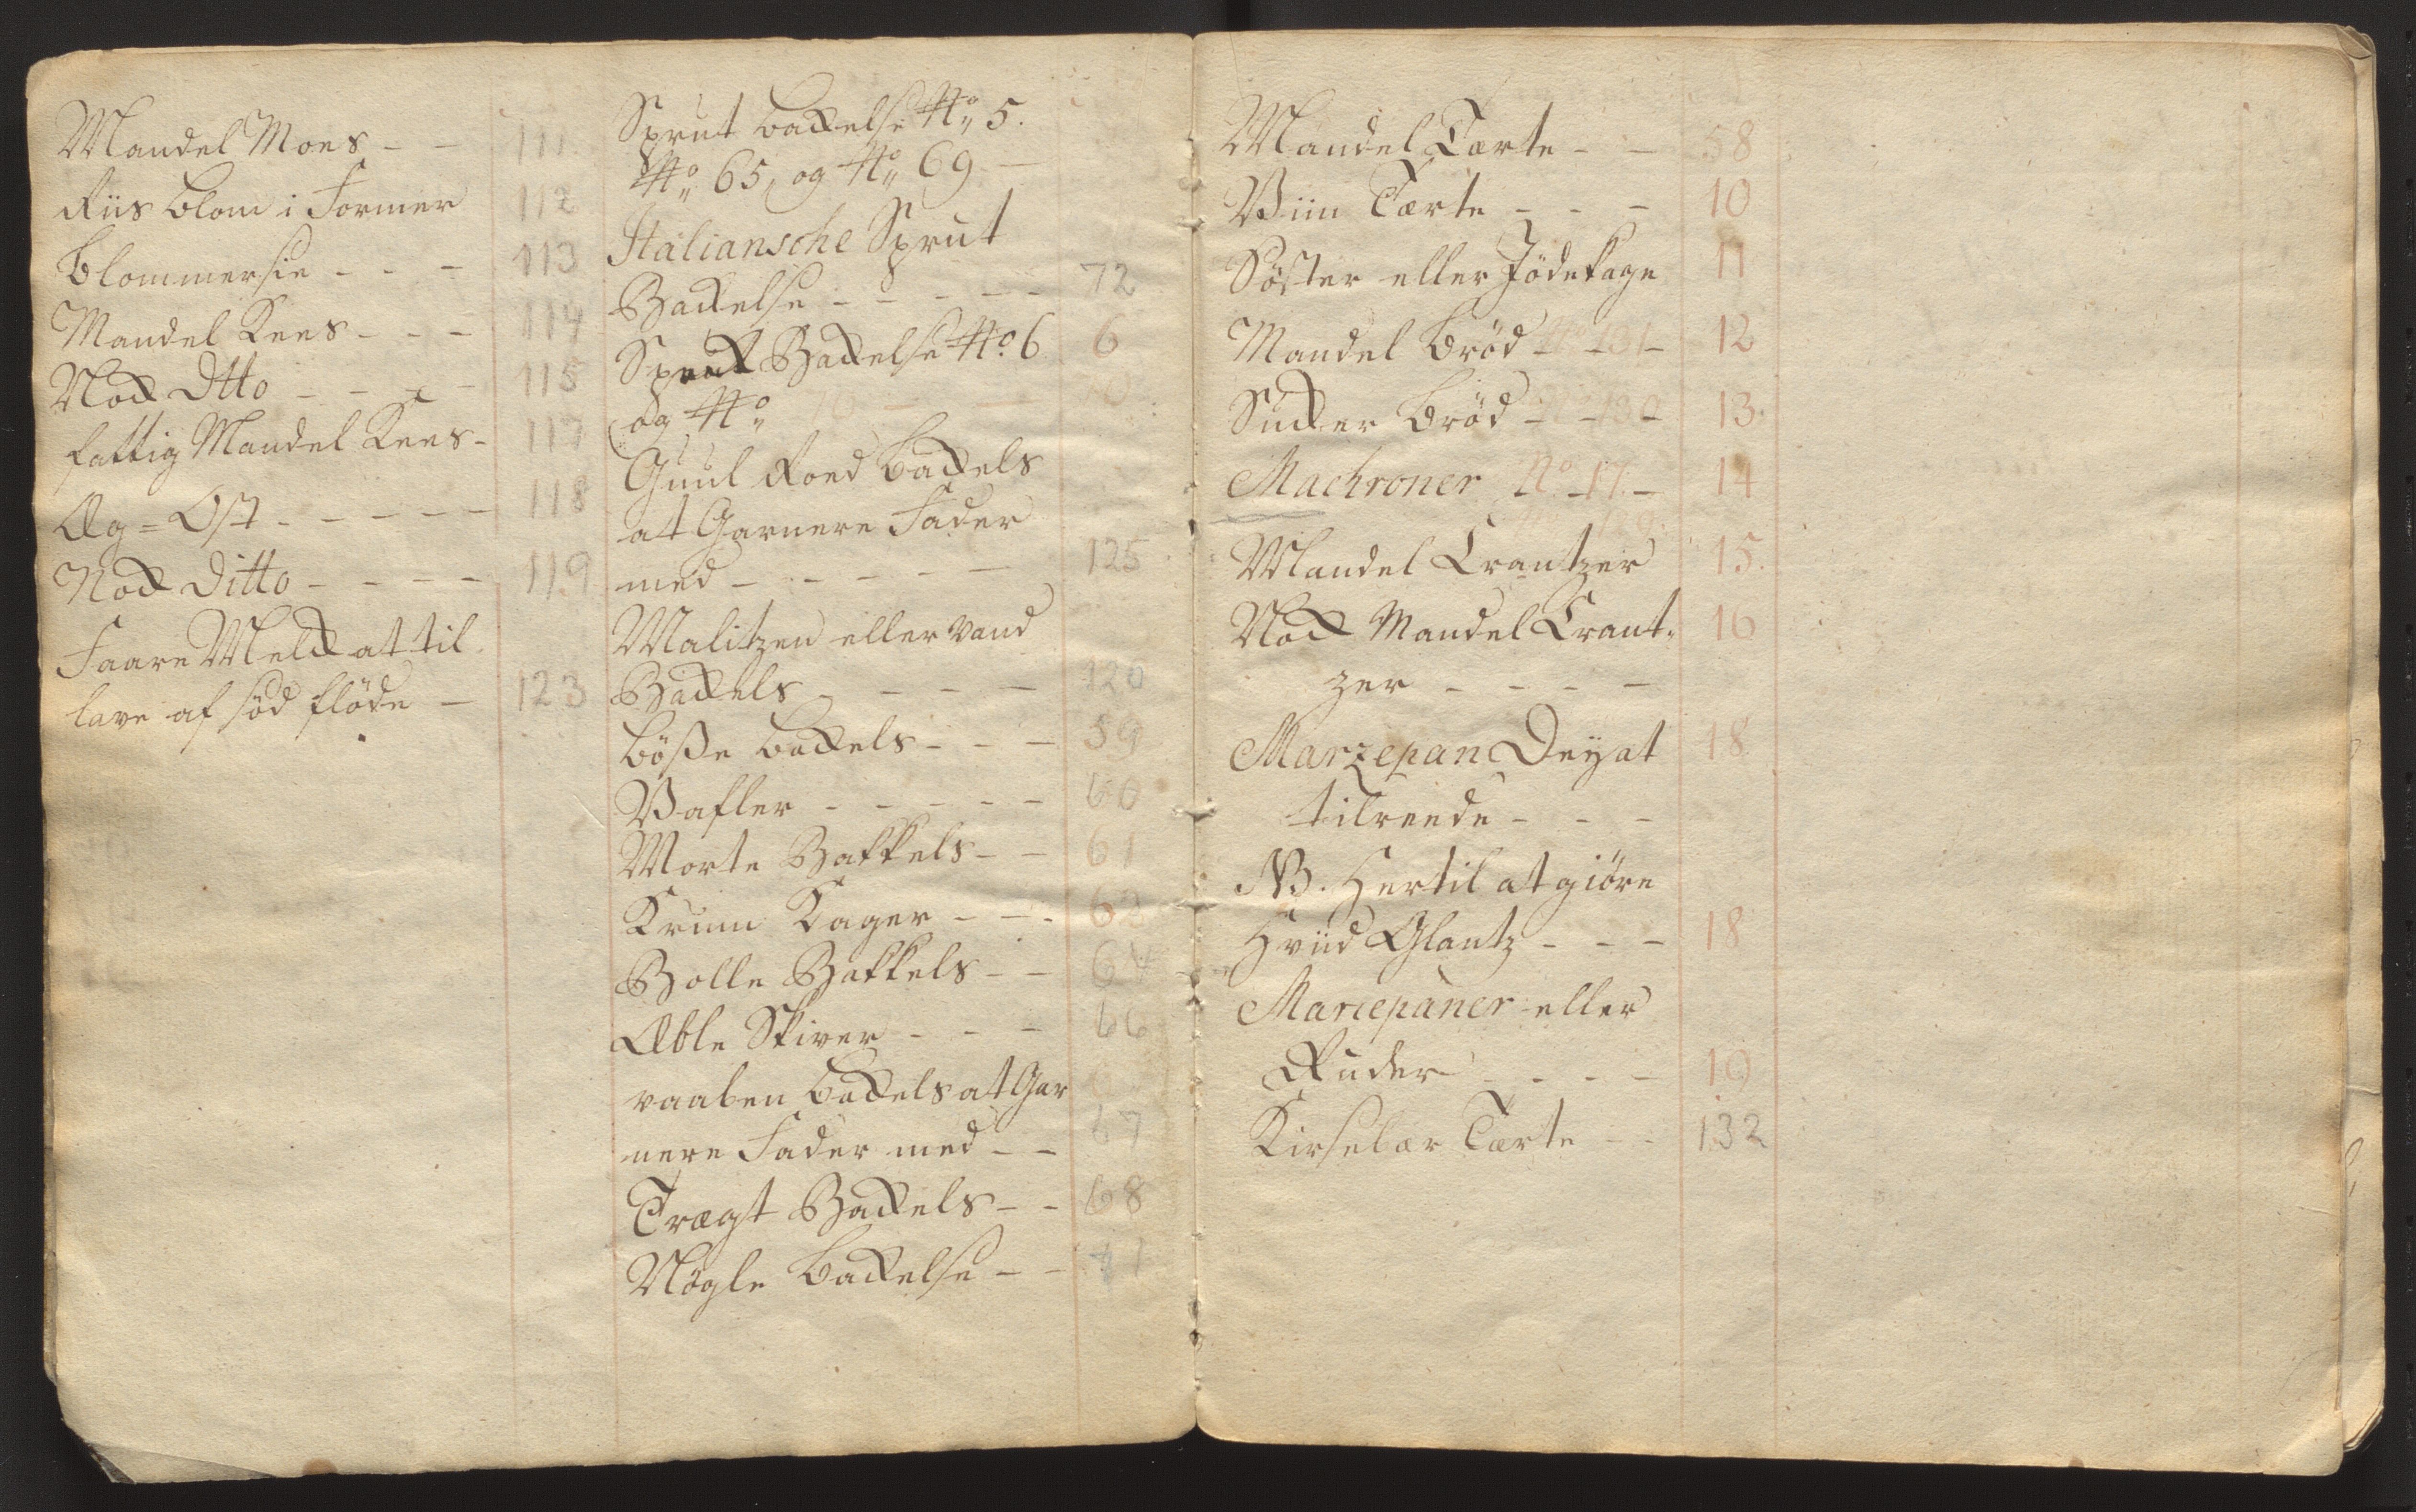 Mandel Moes - - 111
Riis blom i Former 112
Blommersie - - - 113
Mandel Kees - - - 114
Nock Dtto - - - - 115
fattig Mandel Kees - 117
Æg = Ost - - - - - 118
Nock Ditto - - - - 119
Faare Melck at til
lave af söd flöde - 123
Sprut backelse No 5.
No 65, og No 69 -
Italiansche Sprut
Backelse - - - - - 72
Backelse No 6 6
og No
Guul Roed backels
at Garnere Fader
med - - - - - 125
Malitzen eller Vand
Backels - - - - 120
böße backels - - - 59
Vafler - - - - - 60
Morte Bakkels - - 61
Krum Kager - - - 62
Bolle Bakkels - - 64
Æble Skiver - - - 66
vaaben backels at Gar
nere Fader med - - 67
Trægt Backels - - 68
Nögle backelse - - 71
Mandel Tærte - - 58
Viin Tærte - - - 10
Söster eller Jödekage 11
Mandel bröd No 131 - 12
Sucker bröd - - 130 - 13.
Machroner No - 17 - 14
Mandel Crantzer 15.
Nock Mandel Crant- 16
zer - - - -
Marzepan Dey at 18
tilreede - - -
NB. Hertil at giöre
Hviid Glantz - - - 18
Marcepaner eller
Ruder - - - - 19
Kirsebær Tærte - - 132